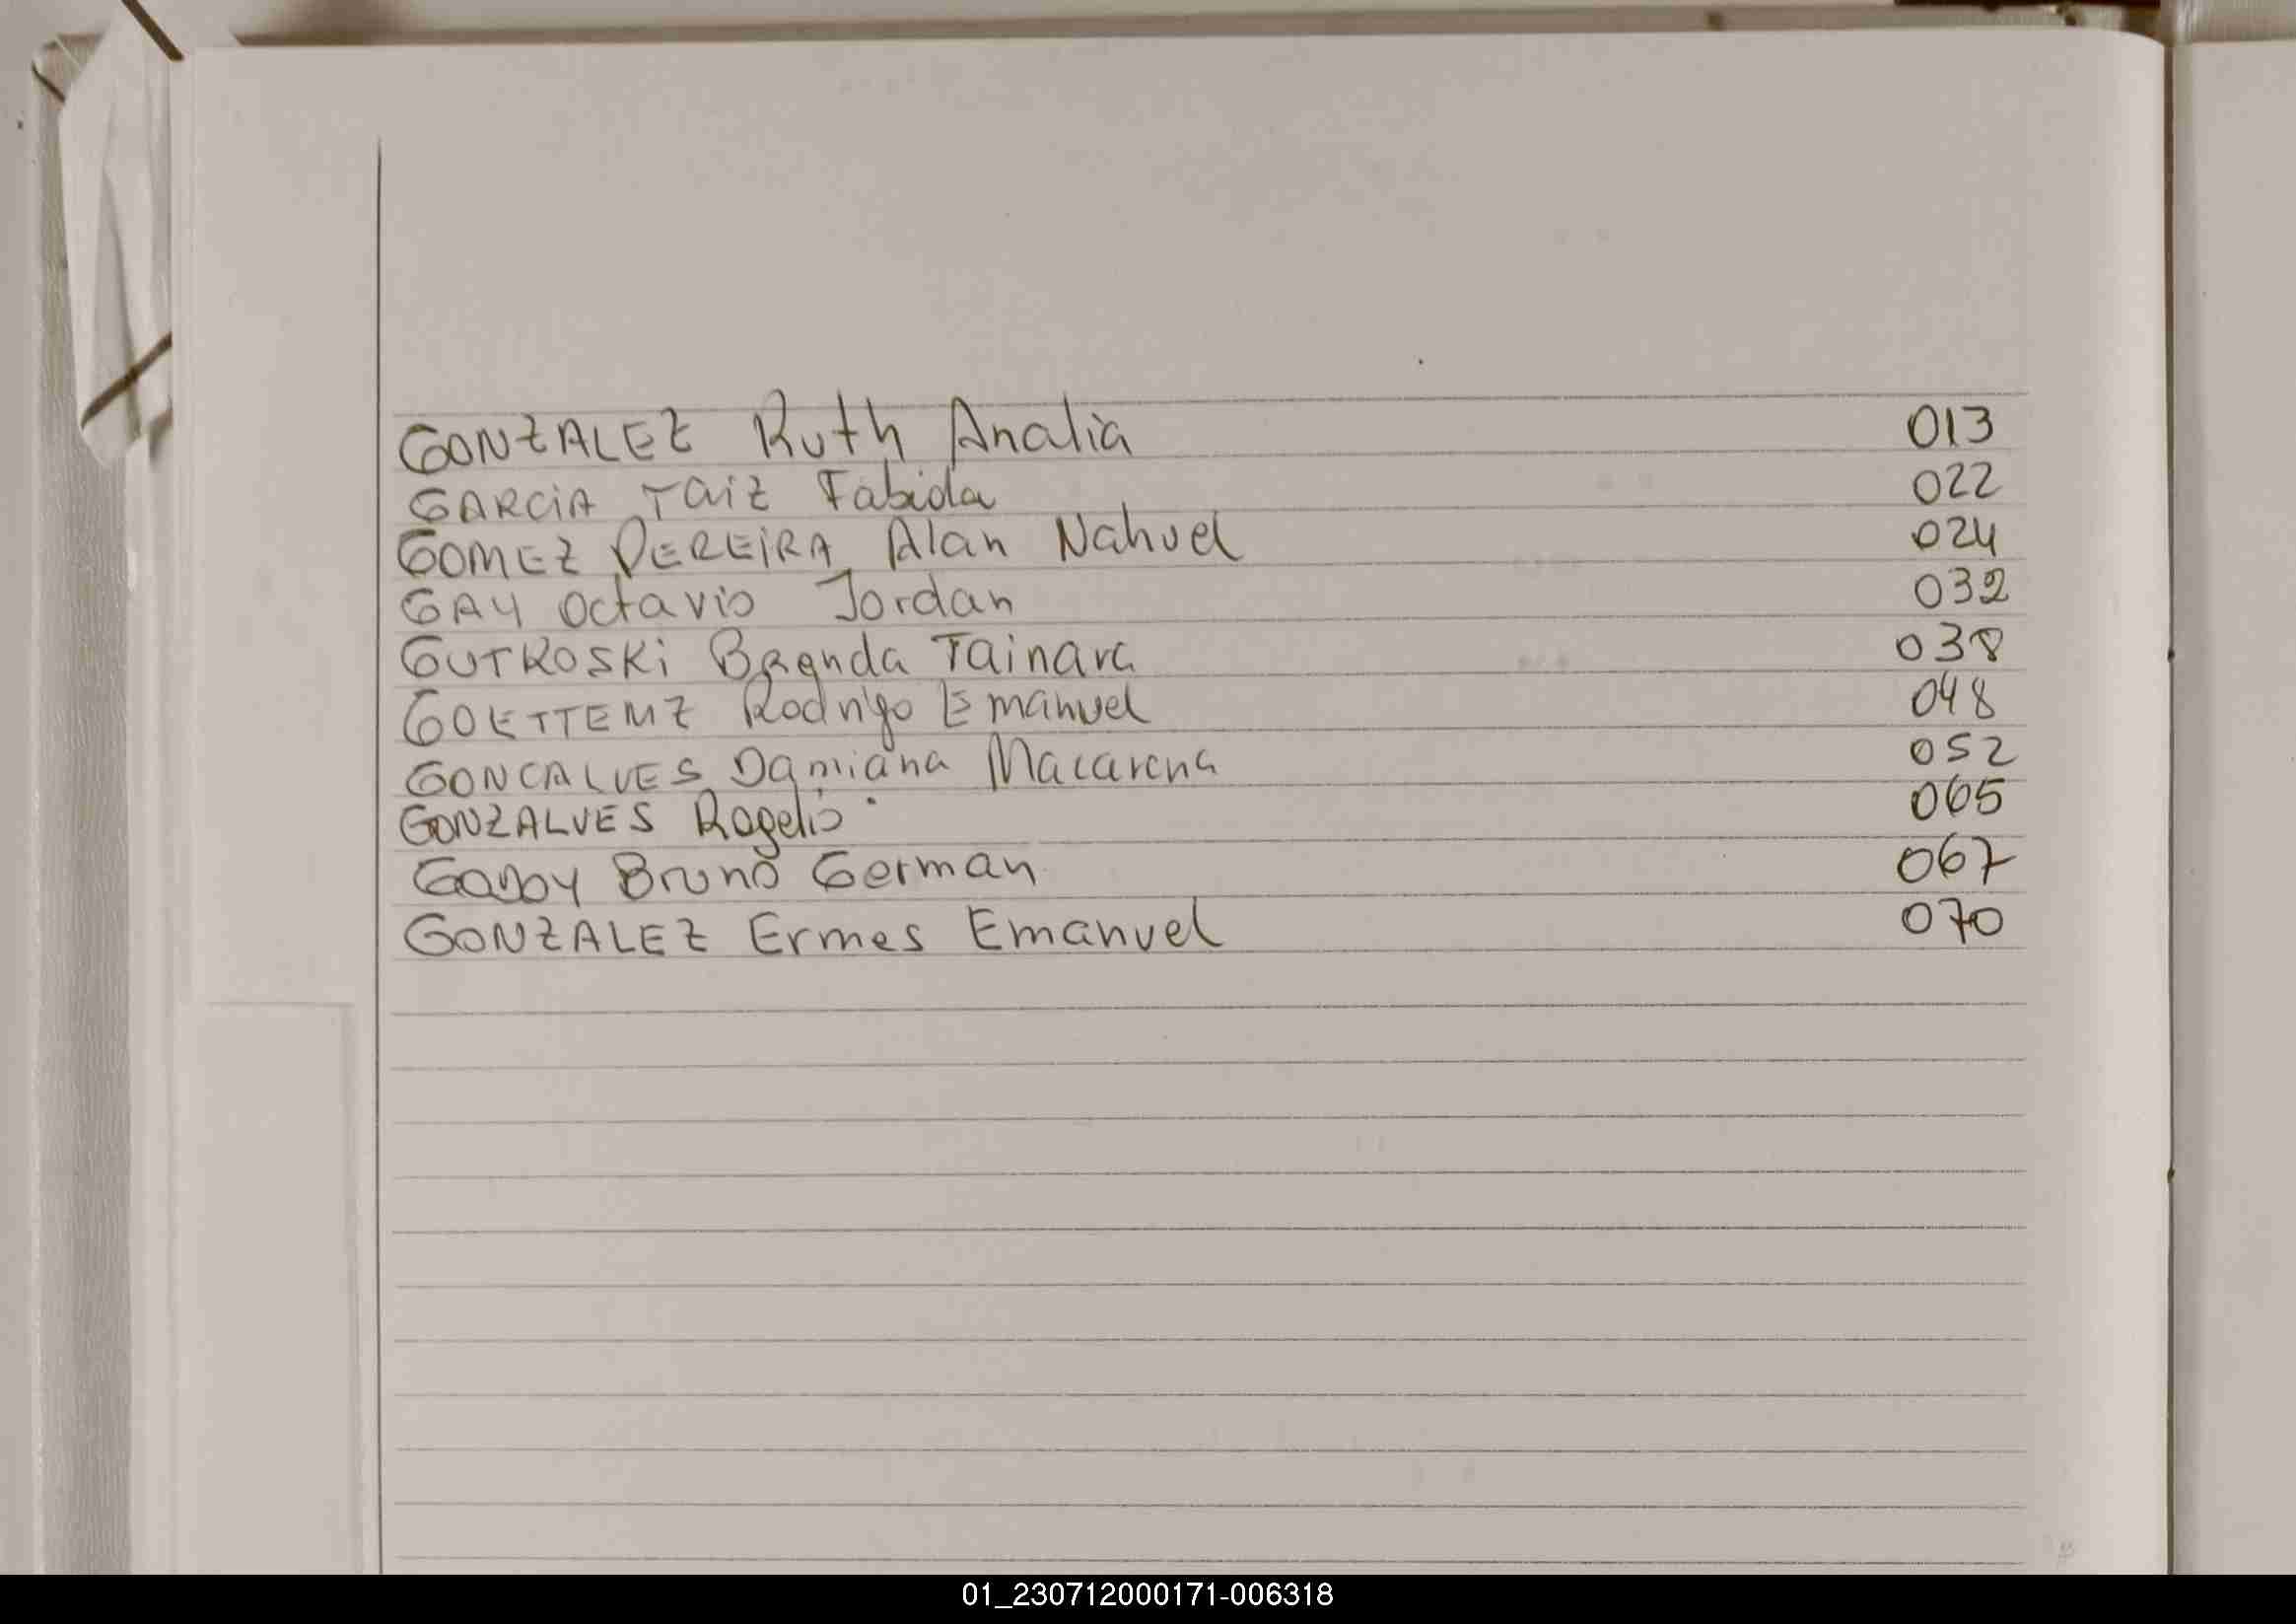 GONZALEZ Ruth Analia 013
GARCiA Taiz Fabiola 022
GOMEZ PEREiRA Alan Nahuel 024
GAY Octavio Jordan 032
GUTKOSKi Brenda Tainara 038
GOETTEMZ Rodrigo Emanuel 048
GONCALVES Damiana Macarena 052
GONZALVES Rogelio 065
Bruno German 067
GONZALEZ Ermes Emanuel 070
01_230712000171-006318